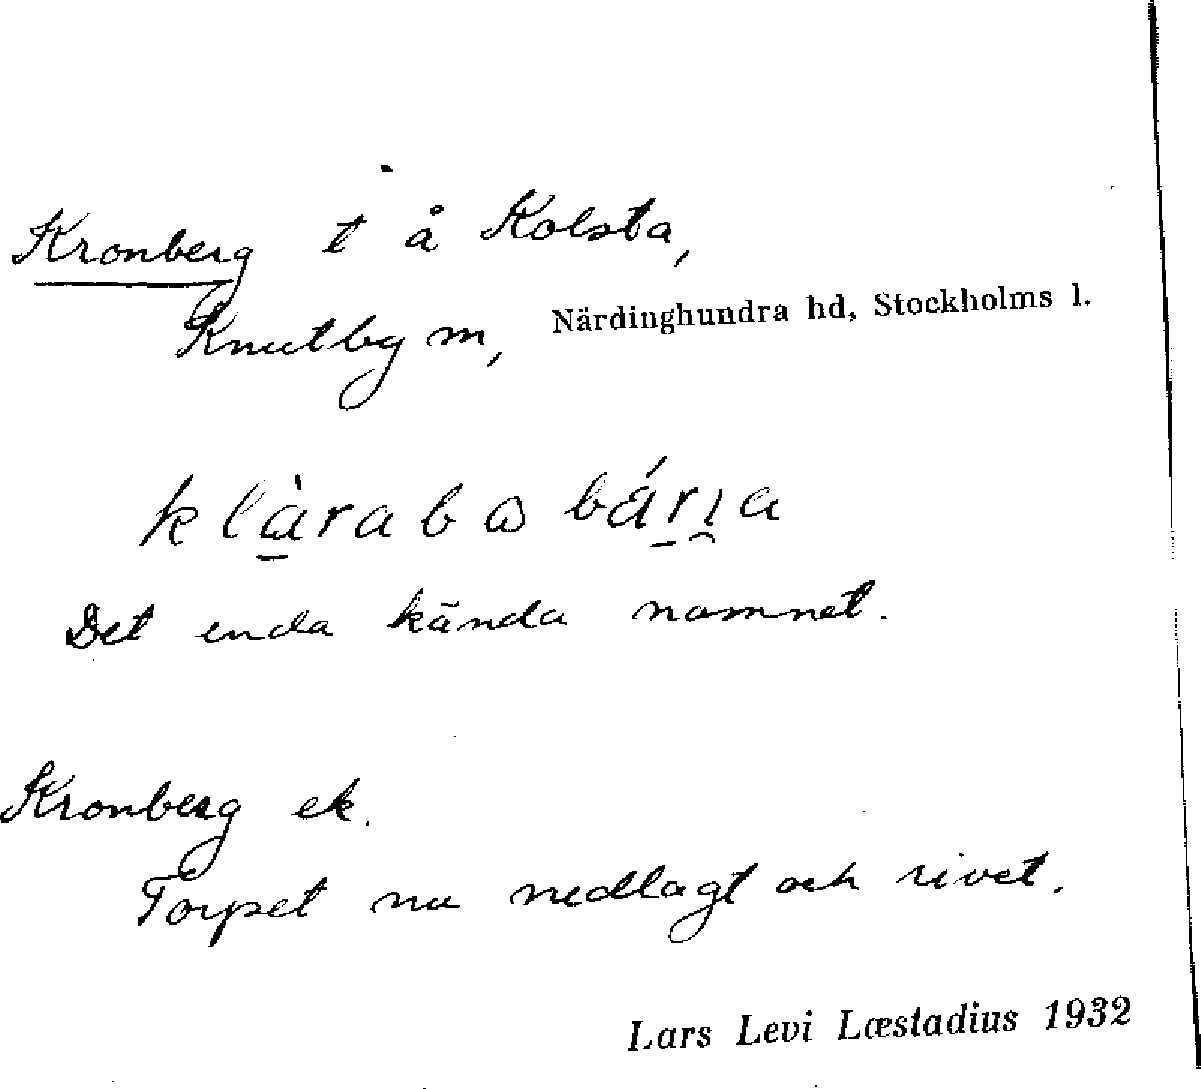 Kronberg t å Kolsta,
Knutby sn, Närdinghundra hd, Stockholms l.
klàrabɷ bárı̯a
Det enda kända namnet.
Kronberg ek.
Torpet nu nedlagt och rivet.
Lars Levi Læstadius 1932